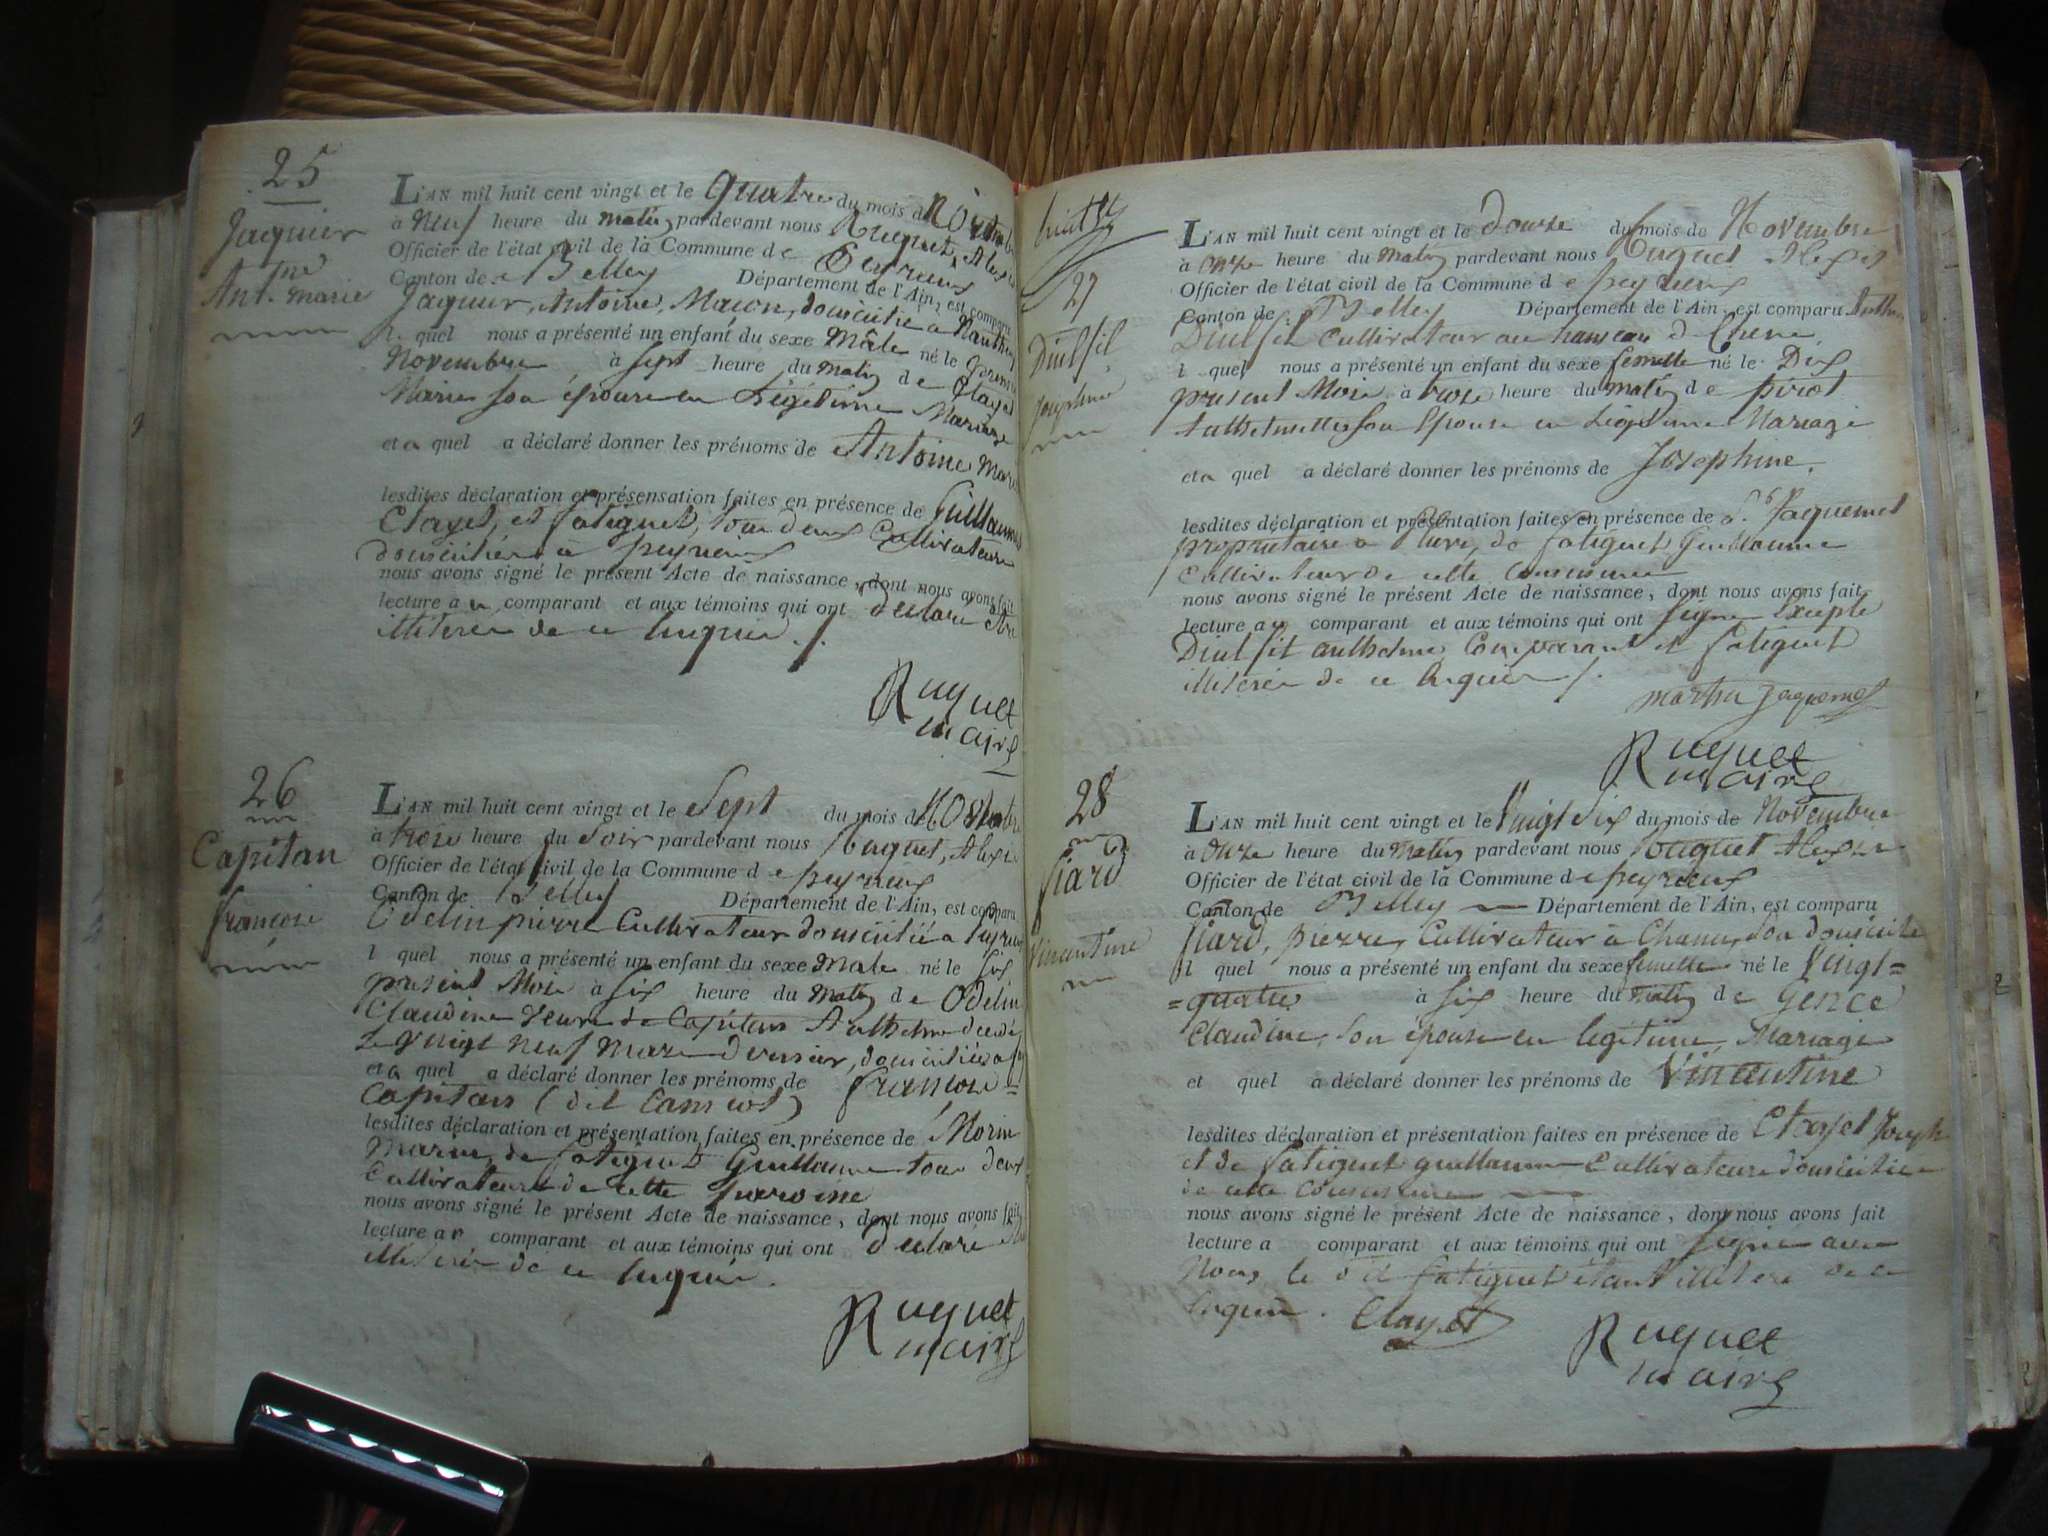 25
Jaquier
Ant.ne marie
L'AN mil huit cent vingt et le quatre du mois de
à neuf heure du matin pardevant nous Ruguet, Alexis
Officier de l'état civil de la Commune de Peyrieux
Canton de Belley Département de l'Ain, est comparu
Jaquier, Antoine, Maçon, domicilié à
l quel nous a présenté un enfant du sexe Mâle né le
Novembre à sept heure du matin de Clayet
Marie son épouse en Légitime Mariage
et a quel a déclaré donner les prénoms de Antoine Marie
lesdites déclaration et présensation faites en présence de Guillaume
Clayet, et fatiguet, tous deux Cultivateurs
domiciliés à peyrieux
nous avons signé le présent Acte de naissance, dont nous avons fait
lecture au comparant et aux témoins qui ont déclaré être
illiterés de ce enquis ./.
Ruguet
maire
26
Capitan
françois
L'AN mil huit cent vingt et le Sept du mois de
à trois heure du Soir pardevant nous Ruguet, Alexis
Officier de l'état civil de la Commune de peyrieux
Canton de Belley Département de l'Ain, est comparu
Odelin pierre Cultivateur domicilié à peyrieux
l quel nous a présenté un enfant du sexe Mâle né le Six
présent Mois à six heure du matin de Odelin
Claudine Veuve de Capitan Anthelme décédé
le vingt neuf Mars dernier, domiciliée à
et a quel a déclaré donner les prénoms de françois =
Capitan (dit )
lesdites déclaration et présentation faites en présence de Morin
Marin, de fatiguet Guillaume tous deux
Cultivateurs de cette paroisse
nous avons signé le présent Acte de naissance, dont nous avons fait
lecture au comparant et aux témoins qui ont déclaré
illiterés de ce enquis.
Ruguet
maire
27
Diulfit
Josephine
L'AN mil huit cent vingt et le Douze du mois de Novembre
à onze heure du matin pardevant nous Ruguet Alexis
Officier de l'état civil de la Commune de peyrieux
Canton de Belley Département de l'Ain, est comparu
Diulfit Cultivateur au hameau d
l quel nous a présenté un enfant du sexe femelle né le Dix
présent Mois à trois heure du matin de pirot
Anthelmette son Epouse en Légitime Mariage
et a quel a déclaré donner les prénoms de Josephine.
lesdites déclaration et présentation faites en présence de Jaquemet
propriétaire a , de fatiguet Guillaume
Cultivateur de cette Commune
nous avons signé le présent Acte de naissance, dont nous avons fait
lecture au comparant et aux témoins qui ont signé Excepté
Diulfit anthelme Comparant et fatiguet
illiterés de ce Enquis ./.
martin jaquemet
Ruguet
maire
28
fiard
Vincentine
L'AN mil huit cent vingt et le Vingt Six du mois de Novembre
à Onze heure du Matin pardevant nous Ruguet Alexis
Officier de l'état civil de la Commune de peyrieux
Canton de Belley Département de l'Ain, est comparu
fiard, pierre, Cultivateur à son domicile
l quel nous a présenté un enfant du sexe femelle né le Vingt=
=quatre à six heure du matin de Gence
Claudine, son épouse en légitime Mariage
et quel a déclaré donner les prénoms de Vincentine
lesdites déclaration et présentation faites en présence de Clayet Joseph
et de fatiguet guillaume Cultivateurs domiciliés
de cette Commune
nous avons signé le présent Acte de naissance, dont nous avons fait
lecture a comparant et aux témoins qui ont signé avec
Nous, le dit fatiguet étant illiteré de ce
Enquis. Clayet
Ruguet
maire